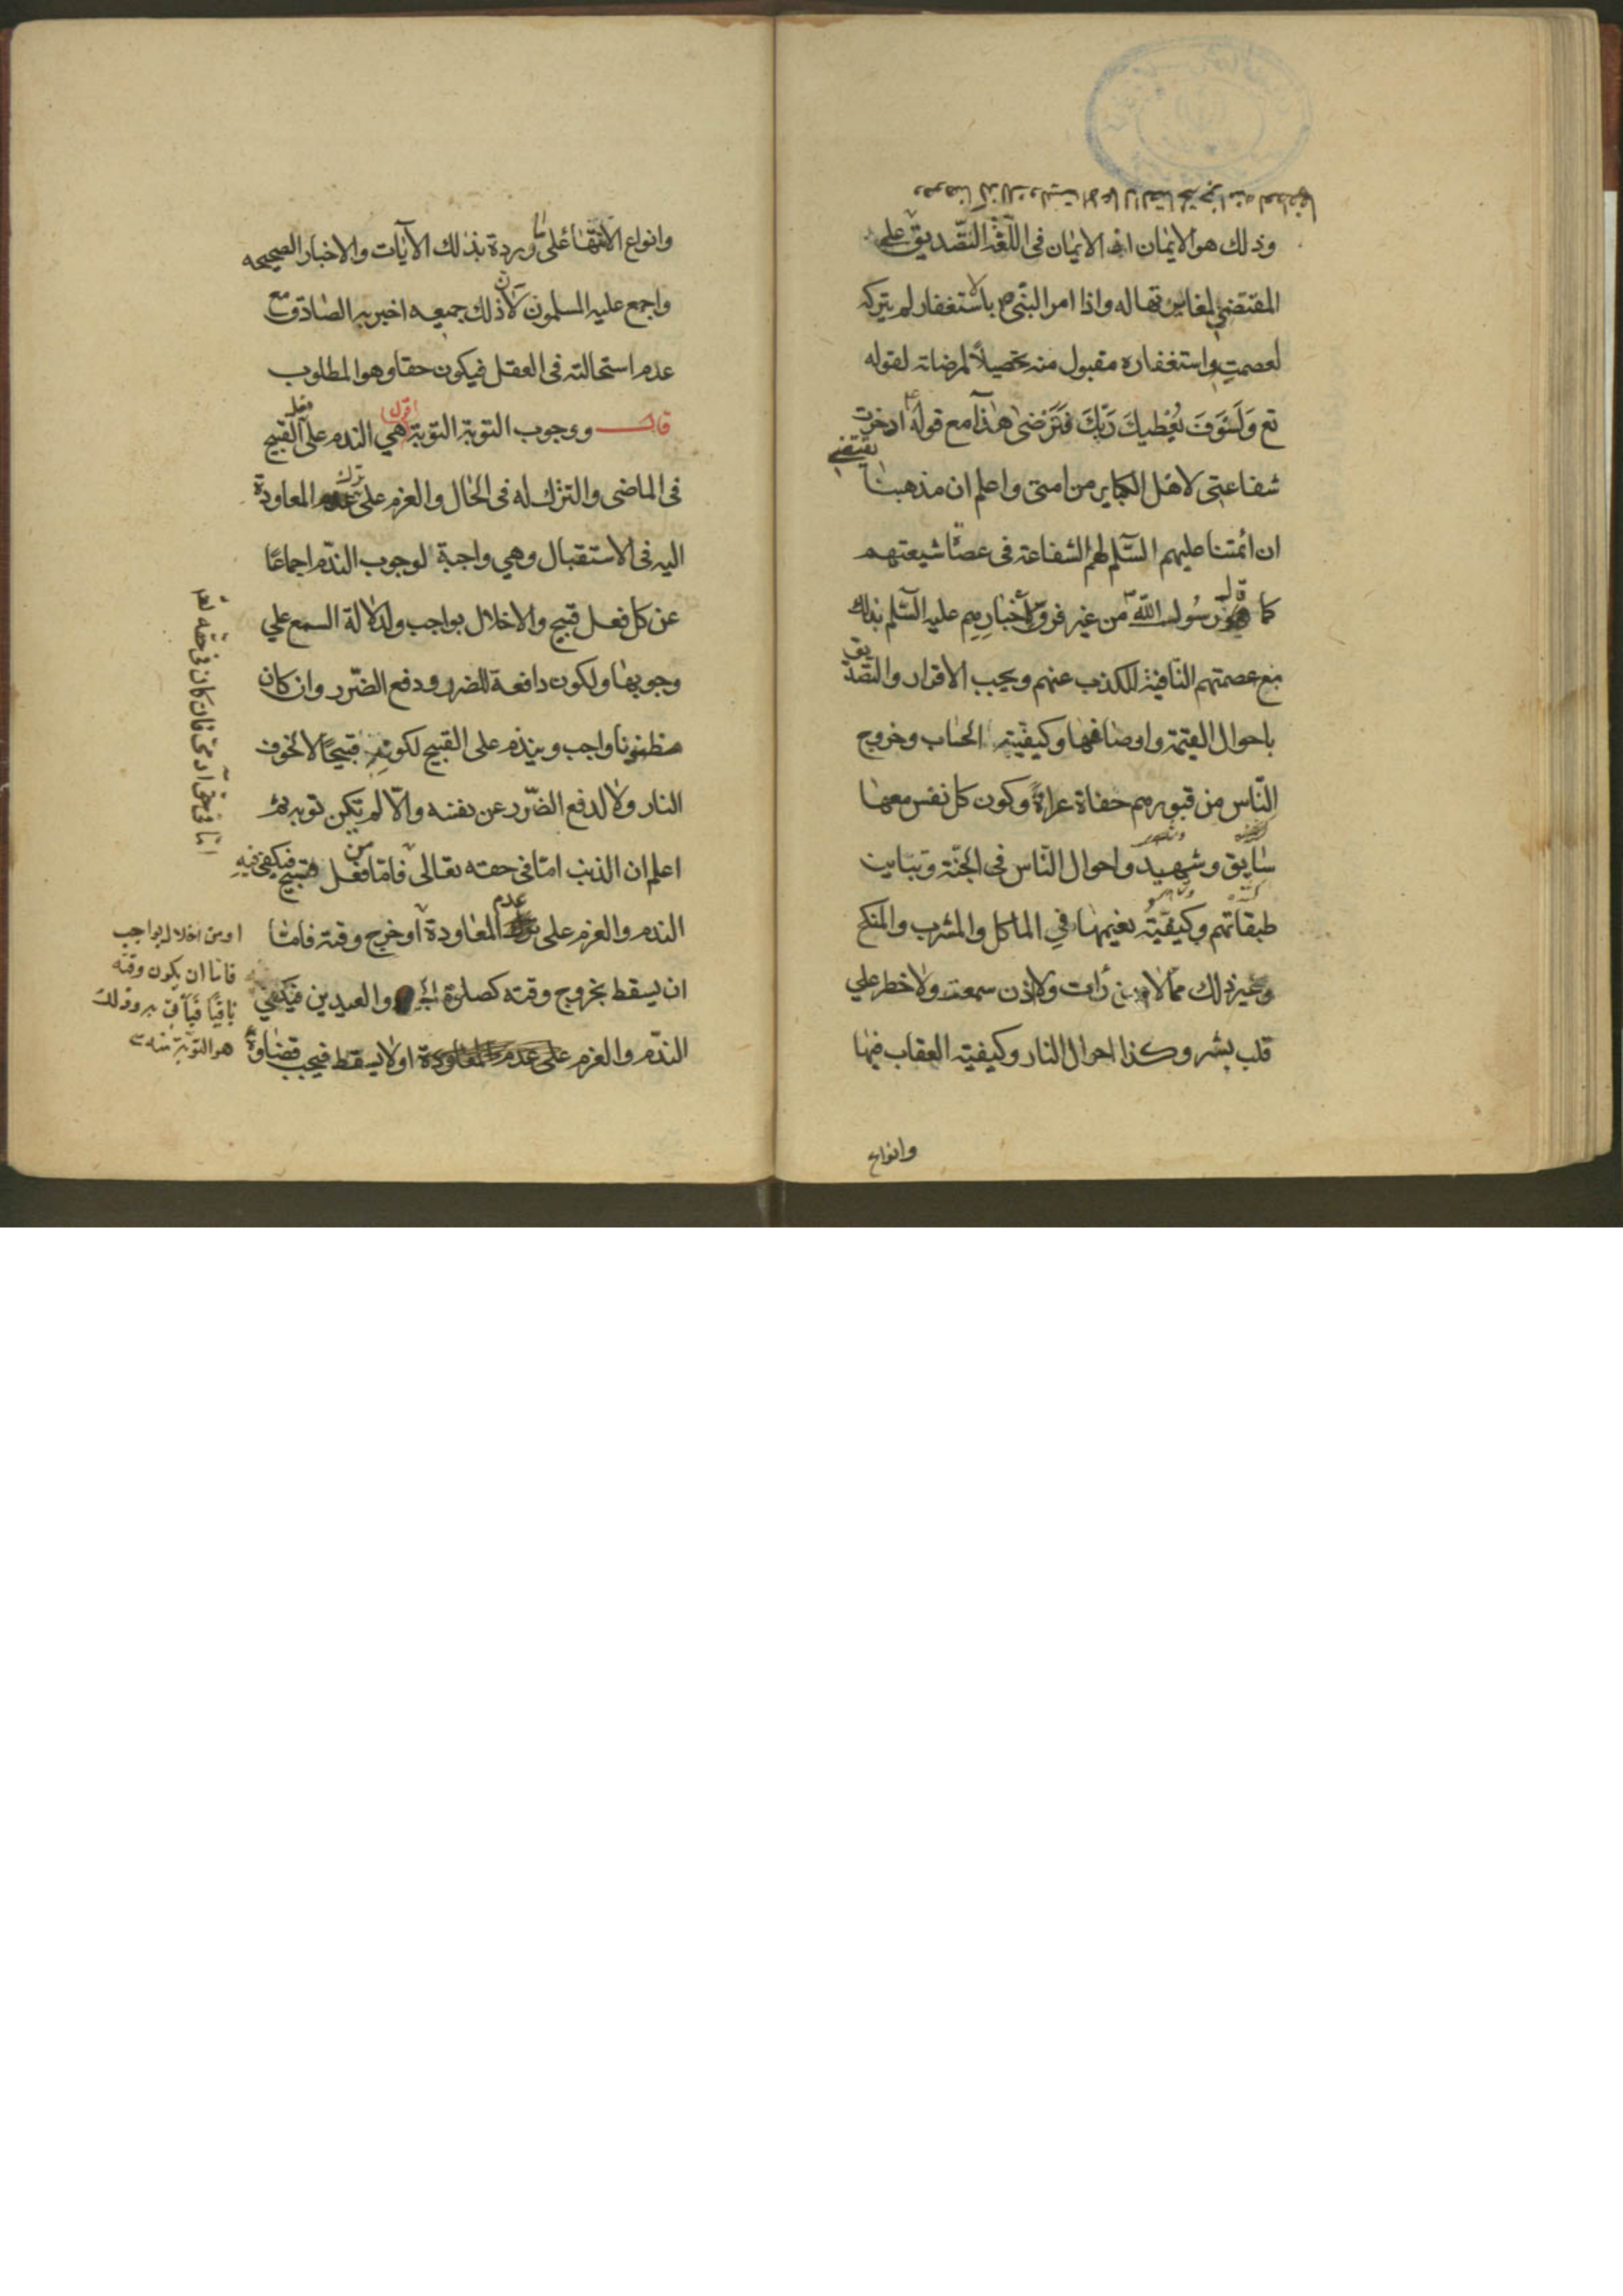 وذلك هو الايمان اذ الايمان فى اللّغة التصديق على
المقتضى لمغايرتها له واذا امر النبى ص بالاستغفار لم يتركه
لعصمته واستغفاره مقبول منه تحصيلاً لمرضاته لقوله
تع وَلَسَوفَ يُعْطيكَ رَبّكَ فَتَرْضىٰ هذا مع قوله ادخرت
شفاعتى لاهل الكباير من امتى واعلم ان مذهبنا
يقتضى
ان ائمتنا عليهم السّلم لهم الشفاعة فى عصاة شيعتهم
كما قال رسُول الله من غير فرق لأخبارهم عليه السّلم بذلك
مع عصمتهم النّافية للكذب عنهم ويجب الاقرار والتصديق
باحوال القيمة واوصافها وكيفيّة الحساب وخروج
النّاس من قبورهم حفاة عراةً وكون كل نفس معها
سايق وشهيد واحوال النّاس فى الجنّة وتباين
طبقاتهم وكيفيّة نعيمها فى الماكل والمشرب والمنكح
وغير ذلك ممّا لا عين رأت ولا اذن سمعت ولا خطر على
قلب بشر وكذا احوال النار وكيفية العقاب فيها
وانواع
وانواع الامها على ما وردة بذلك الآيات والاخبار الصحيحه
واجمع عليه المسلمون لان ذلك جميعه اخبر به الصّادق مع
عدم استحالته فى العقل فيكون حقا وهو المطلوب
قال ووجوب التوبة اقول التوبة هي الندم على فعل القبيح
فى الماضى والترك له فى الحال والعزم على ترك المعاودة
اليه فى الاستقبال وهي واجبة لوجوب الندّم اجماعًا
عن كل فعل قبيح والاخلال بواجب ولدلالة السمع علي
وجوبها ولكون دافعة للضرر ودفع الضّرر وان كان
مظنونا واجب ويندم على القبيح لكونه قبيحًا لا لخوف
النار ولا لدفع الضّرر عن نفسه والّا لم تكن توبة
اعلم ان الذنب امّا فى حقه تعالى فامّا من فعل قبيح فيكفى فيه
الندم والعزم على عدم المعاودة او خرج وقته فامّا
ان يسقط بخروج وقته كصلوة والعيدين فيكفي
الندّم والعزم على عدم المعاودة اولا يسقط فيجب قضاؤه
او من اخلال بواجب
فاما ان يكون وقته
باقيًا فيأتى به وذلك
هو التوبة منه